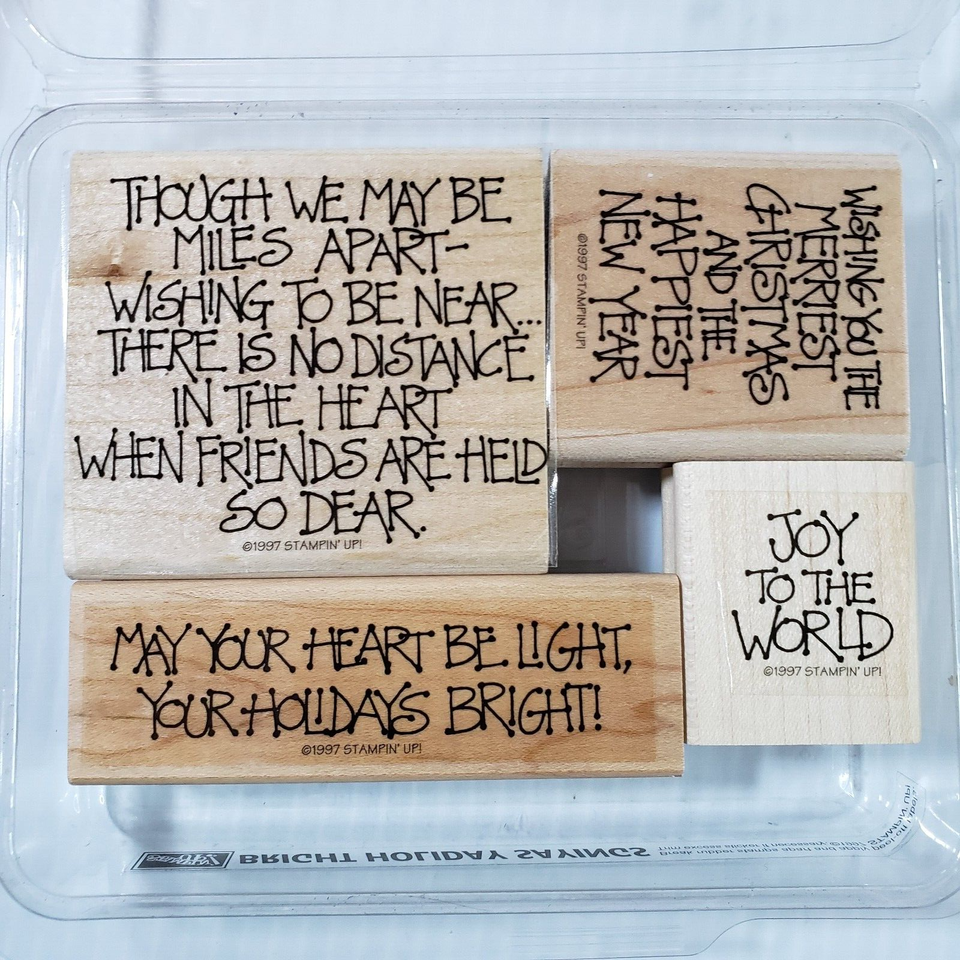 THOUGH WE MAY BE
MILES APART-
WISHING TO BE NEAR...
THERE IS NO DISTANCE
IN THE HEART
WHEN FRIENDS ARE HELD
SO DEAR.
©1997 STAMPIN' UP!
WISHING YOU THE
MERRIEST
CHRISTMAS
AND THE
HAPPIEST
NEW YEAR
©1997 STAMPIN' UP!
JOY
TO THE
WORLD
©1997 STAMPIN' UP!
MAY YOUR HEART BE LIGHT,
YOUR HOLIDAYS BRIGHT!
©1997 STAMPIN' UP!
BRIGHT HOLIDAY SAYINGS